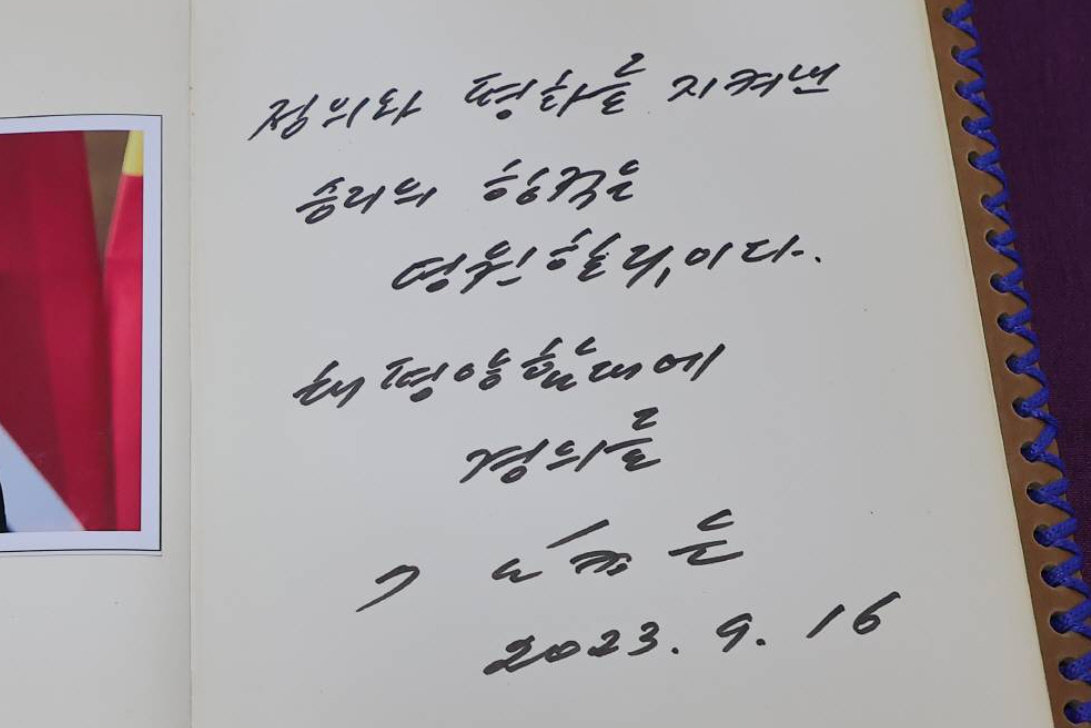 정의와 평화를 지켜낸
승리의 항적은
영원할 것이다.
태평양함대에
경의를
김정은
2023. 9. 16